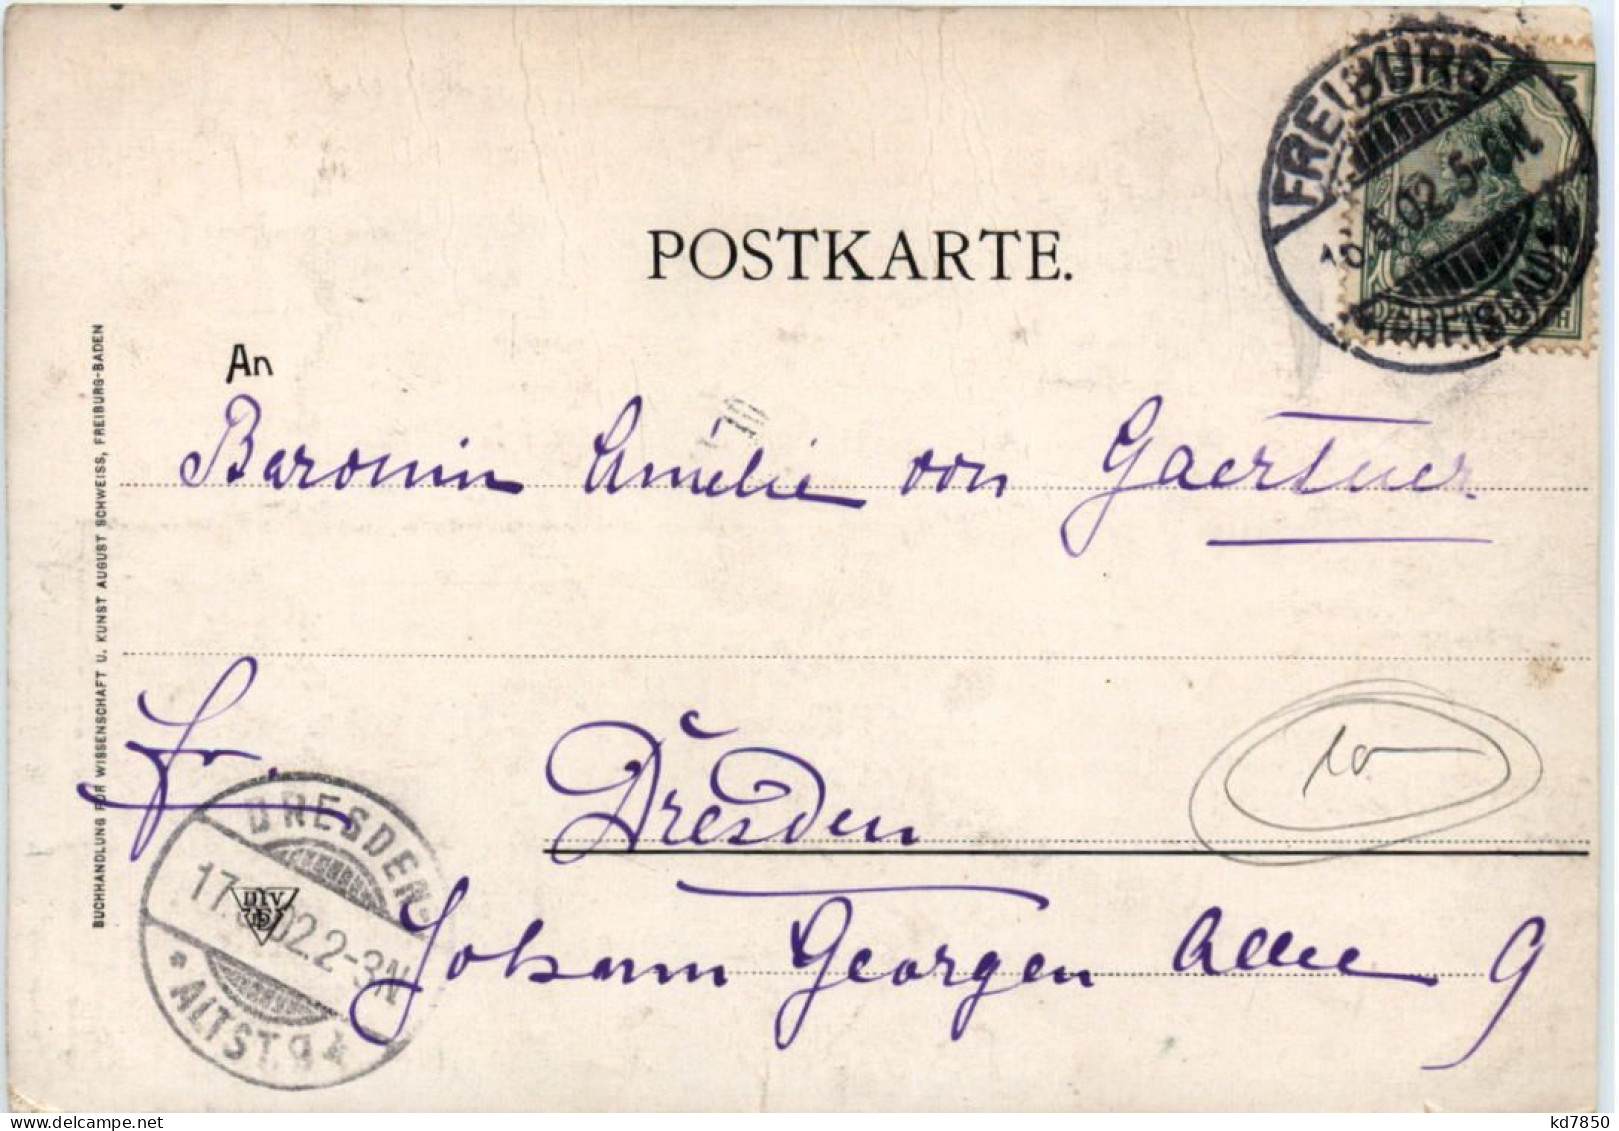 POSTKARTE.
FREIBURG
5.02.5-6N.
(BREISGAU)
An
Baronin Amelie von Gaertner
Fr.
Dresden
Johann Georgen Allee 9
DRESDEN-
17. 02.2-3N
* ALTST.9 *
BUCHHANDLUNG FÜR WISSENSCHAFT U. KUNST AUGUST SCHWEISS, FREIBURG-BADEN
kd7850